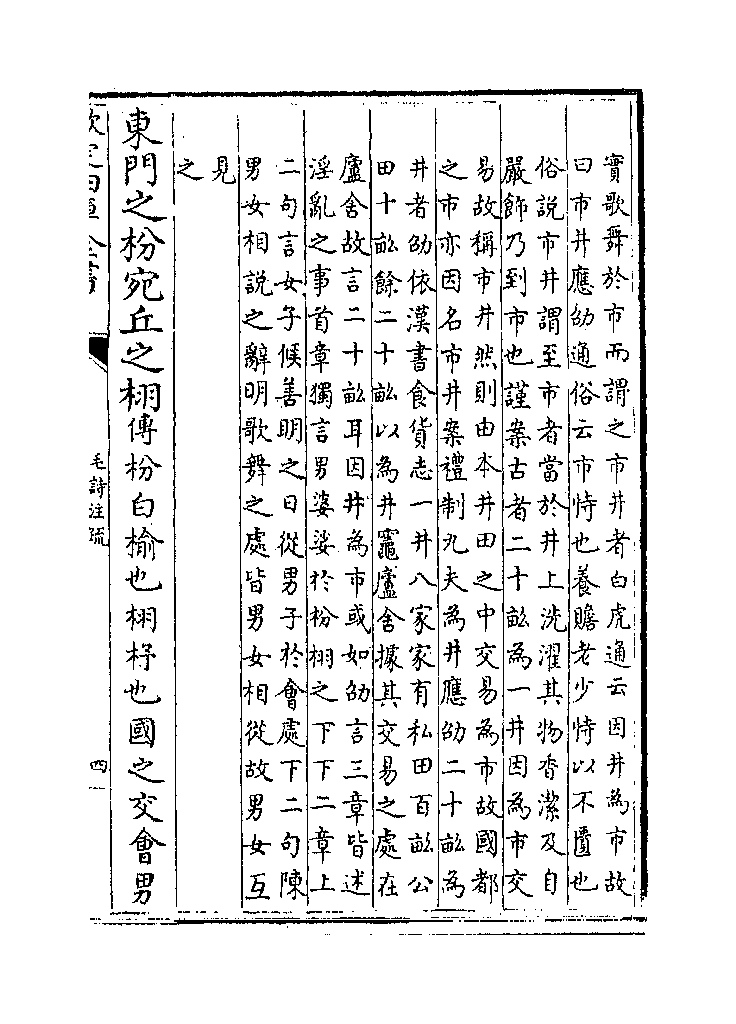 實歌舞於市而謂之市井者白虎通云因井為市故
曰市井應劭通俗云市恃也養贍老少恃以不匱也
俗說市井謂至市者當於井上洗濯其物香潔及自
嚴飾乃到市也謹案古者二十畝為一井因為市交
易故稱市井然則由本井田之中交易為市故國都
之市亦因名市井案禮制九夫為井應劭二十畝為
井者劭依漢書食貨志一井八家家有私田百畝公
田十畝餘二十畝以為井竈廬舍據其交易之處在
廬舍故言二十畝耳因井為市或如劭言三章皆述
淫亂之事首章獨言男婆娑於枌栩之下下二章上
二句言女子候善明之日從男子於會處下二句陳
男女相說之辭明歌舞之處皆男女相從故男女互
見
之
東門之枌宛丘之栩傳枌白榆也栩杼也國之交會男
欽定四庫全書
毛詩注疏
四